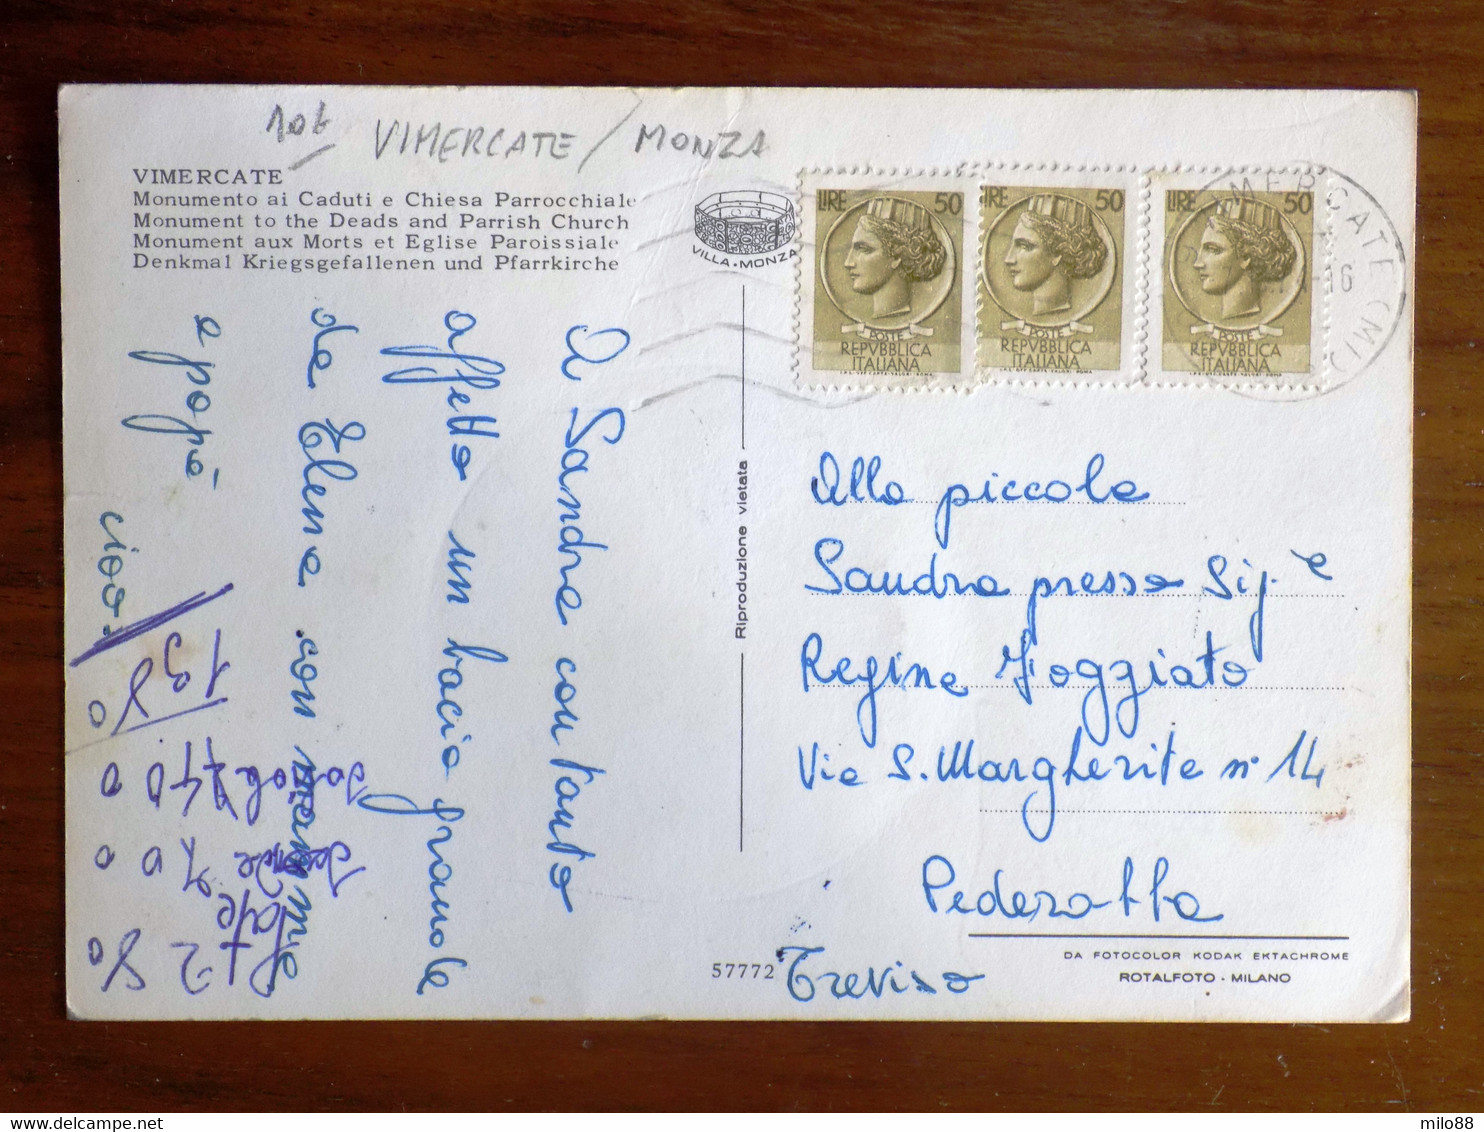 VIMERCATE / MONZA
VIMERCATE
Monumento ai Caduti e Chiesa Parrocchiale
Monument to the Deads and Parrish Church
Monument aux Morts et Eglise Paroissiale
Denkmal Kriegsgefallenen und Pfarrkirche
VILLA · MONZA
LIRE 50
POSTE
REPVBBLICA
ITALIANA
LIRE 50
POSTE
REPVBBLICA
ITALIANA
LIRE 50
POSTE
REPVBBLICA
ITALIANA
MERCATE (MI)
16
A Sandra con tanto
affetto un bacio grande
da Elena con mamma
e papà
ciao.
Riproduzione vietata
57772
Alla piccola
Sandra presso Sig.e
Regina Foggiato
Via S. Margherita n° 14
Pederobba
Treviso
DA FOTOCOLOR KODAK EKTACHROME
ROTALFOTO - MILANO
milo88